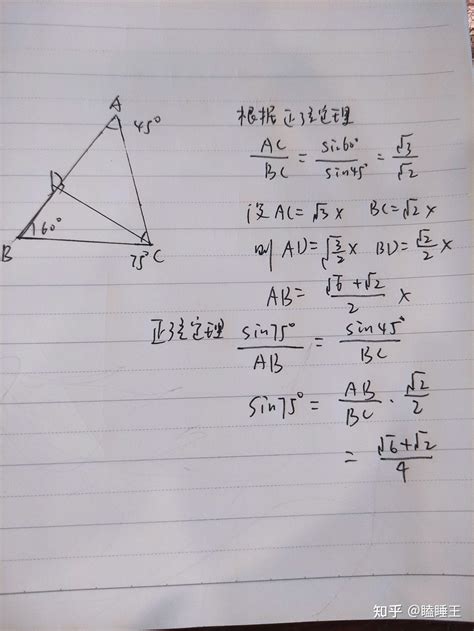 A
45°
D
60°
B
75° C
根据正弦定理
AC/BC = sin60°/sin45° = √3/√2
设 AC=√3x BC=√2x
则 AD=√(3/2)x BD=√2/2 x
AB= (√6+√2)/2 x
正弦定理 sin75°/AB = sin45°/BC
sin75° = AB/BC · √2/2
= (√6+√2)/4
知乎 @瞌睡王